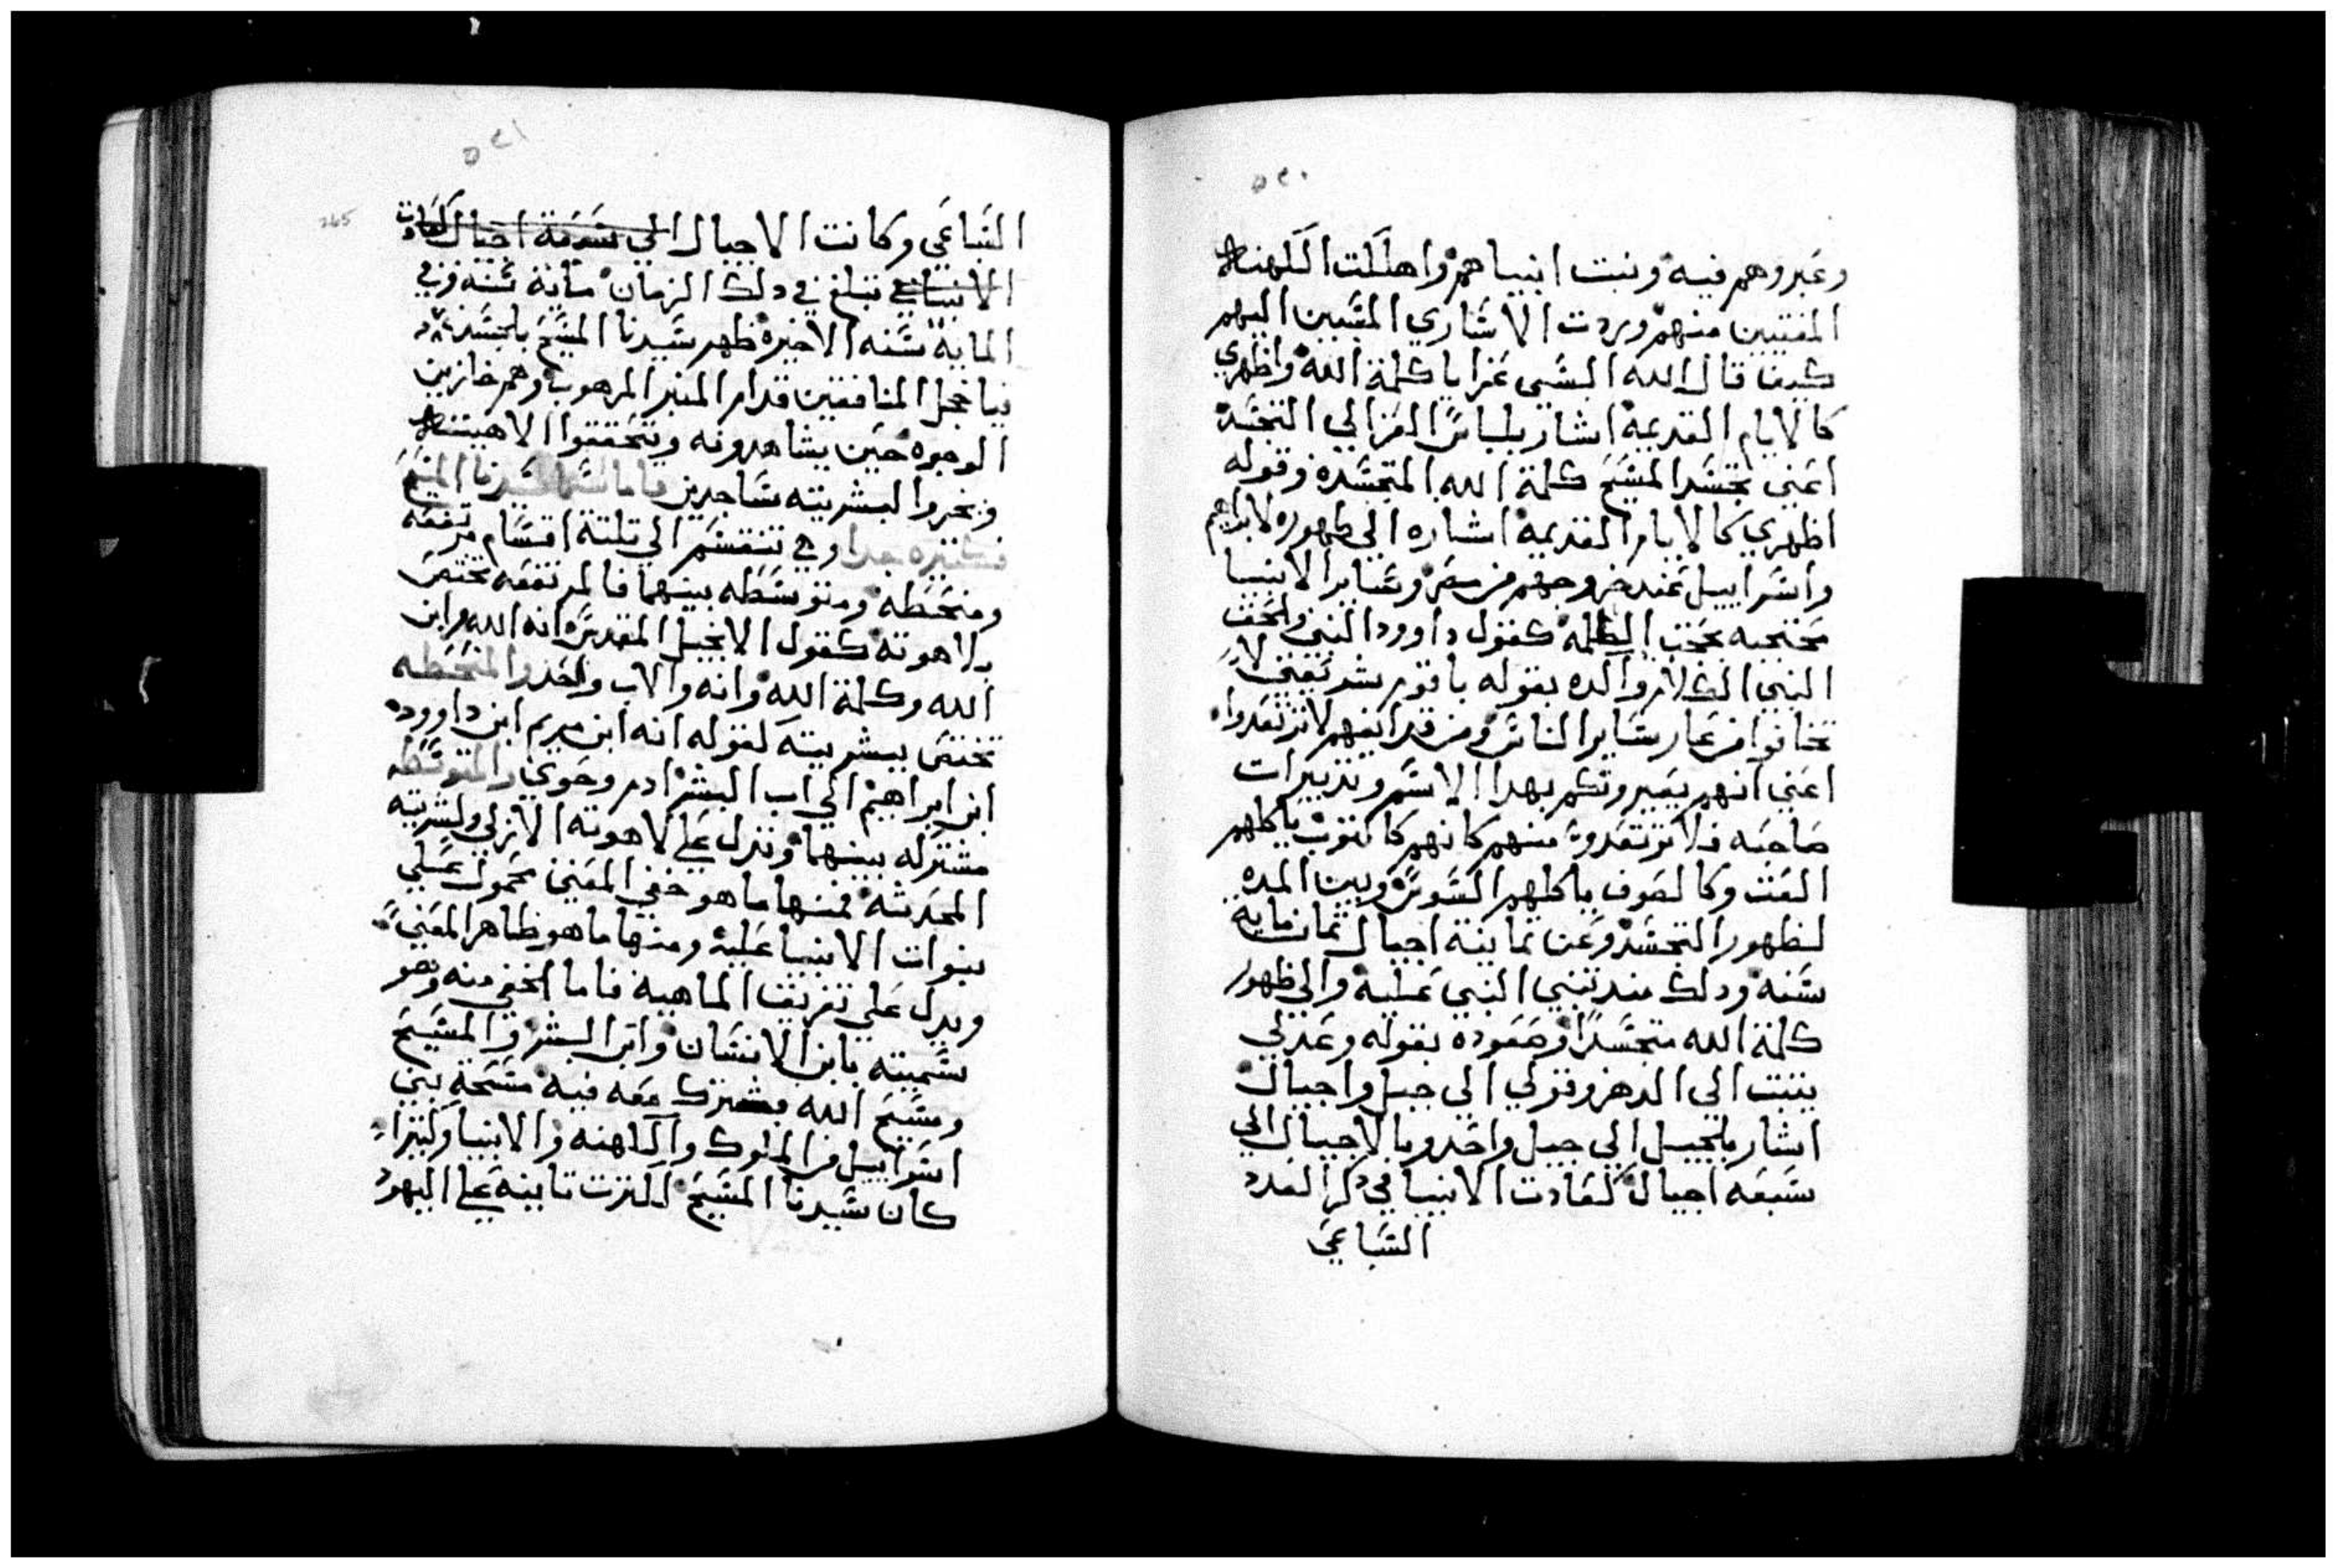 ٥٢٠
وعبروهم فيه وثبت انبياهم واهلكت الكهنه
المفتين منهم وردت الاساري المسبين اليهم
كيف قال الله البسي عزا يا كلمة الله واظهري
كالايام القديمه اشار بلباس العز الي التجسد
اعني تجسد المسيح كلمة الله المتجسده وقوله
اظهري كالايام القديمه اشاره الي ظهوره لابراهيم
واسراييل عند خروجهم من مصر وساير الانبيا
محتجبه بحجب الكلمه كقول داوود النبي
النبي الكلام والده بقوله يا قوم شريعتي لا
تخافوا من عار ساير الناس ومن قدايفهم لا ترتعدوا
اعني انهم يعيرونكم بهدا الاسم وتدبيرات
صاحبه فلا ترتعدون منهم كانهم كالتوب ياكلهم
العث وكالصوف ياكلهم السوس وبين المده
لظهور التجسد وعن تمانية اجيال تمان مايه
سنه ودلك مند تنبي النبي عليه والي ظهور
كلمة الله متجسدا وصعوده بقوله وعدلي
يثبت الي الدهر وتولي الي جيل واجيال
اشار بالجيل الي جيل واحد وبالاجيال الي
سبعه اجيال كعادت الانبيا في دكر العدد
السباعي
٥٢١
265
السباعي وكانت الاجيال الي سبعة اجيال كعادت
الانبيا في تبلغ في دلك الزمان ماية سنه وفي
الماية سنه الاخيره ظهر سيدنا المسيح بالجسد
فيا خجل المنافقين قدام المنبر المرهوب وهم خازيين
الوجوه حين يشاهدونه ويتحققوا الاهيته
ويخروا لبشريته ساجدين فاما اسما سيدنا المسيح
فكتيره جدا وهي تنقسم الي تلتة اقسام مرتفعه
ومنحطه ومتوسطه بينهما فالمرتفعه تختص
بلاهوته كقول الانجيل المقدس انه الله وابن
الله وكلمة الله وانه والاب واحد والمنحطه
تختص ببشريته لقوله انه ابن مريم ابن داوود
ابن ابراهيم الي اب البشر ادم وحوي والمتوسطه
مشتركه بينهما وتدل علي لاهوته الازلي وبشريته
المحدثه فمنها ما هو خفي المعني محمول علي
بنوات الانبيا عليه ومنها ما هو ظاهر المعني
ويدل علي تفريق الماهيه فاما الخفي منه وهو
تسميته بابن الانسان وابن البشر والمسيح
ومسيح الله يشترك معه فيه مسحة بني
اسراييل من الملوك والكهنه والانبيا وكتيرا
كان سيدنا المسيح لكترت تانيه علي اليهود